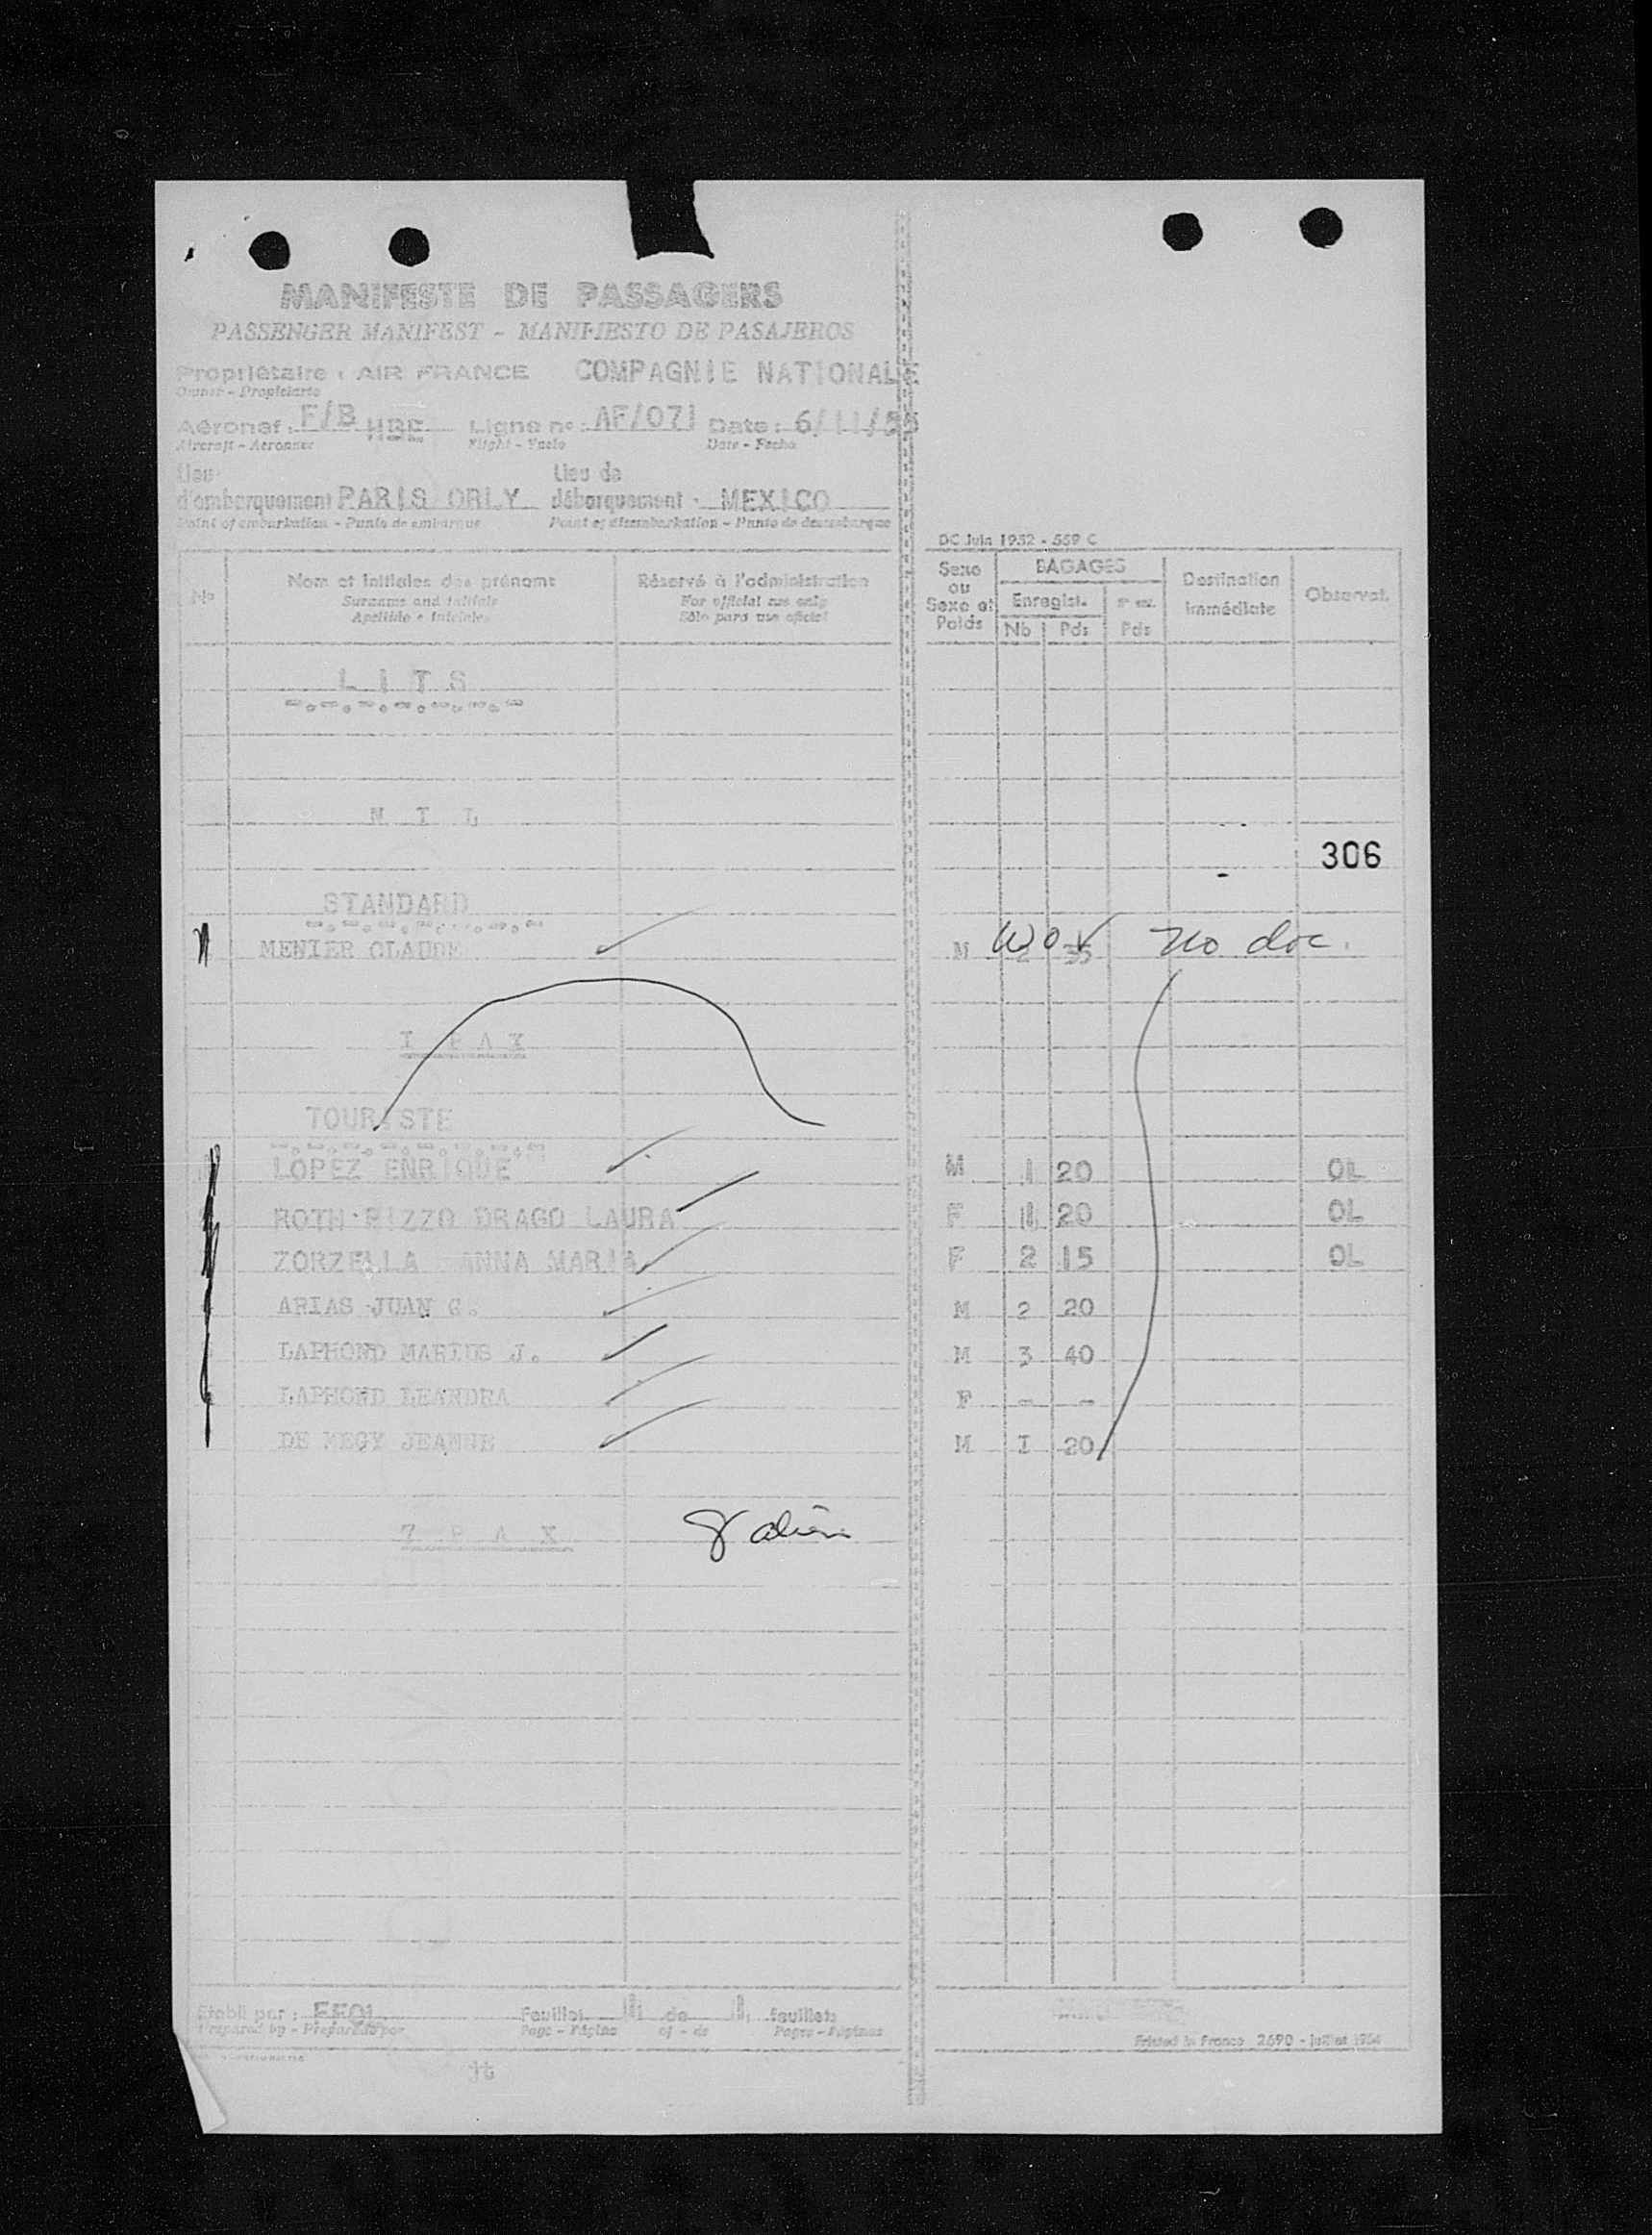 MANIFESTE DE PASSAGERS
PASSENGER MANIFEST - MANIFIESTO DE PASAJEROS
Propriétaire : AIR FRANCE COMPAGNIE NATIONALE
Owner - Propietario
Aéronef : F/B HBE Ligne n° : AF/071 Date : 6/11/55
Aircraft - Aeronave Flight - Vuelo Date - Fecha
Lieu Lieu de
d'embarquement PARIS ORLY débarquement : MEXICO
Point of embarkation - Punto de embarque Point of disembarkation - Punto de desembarque
DC Juin 1952 - 559 C
N° Nom et initiales des prénoms Réservé à l'administration Sexe ou Sexe et Poids BAGAGES Destination immédiate Observat.
Surname and initials For official use only Enregist.
Apellido e iniciales Sólo para uso oficial Nb Pds Pds
L I T S
N I L
306
STANDARD
MENIER CLAUDE M 2 35 no doc.
I P A X
TOURISTE
LOPEZ ENRIQUE M 1 20 OL
ROTH RIZZO DRAGO LAURA F 1 20 OL
ZORZELLA ANNA MARIA F 2 15 OL
ARIAS JUAN G. M 2 20
LAPHOND MARIUS J. M 3 40
LAPHOND LEANDRA F - -
DE JEANNE M I 20
7 P A X 8 alien
Etabli par : Feuillet 1 de 1 feuillets
Prepared by - Preparado por Page - Página of - de Pages - Páginas
Printed in France 2690 - juillet 1954